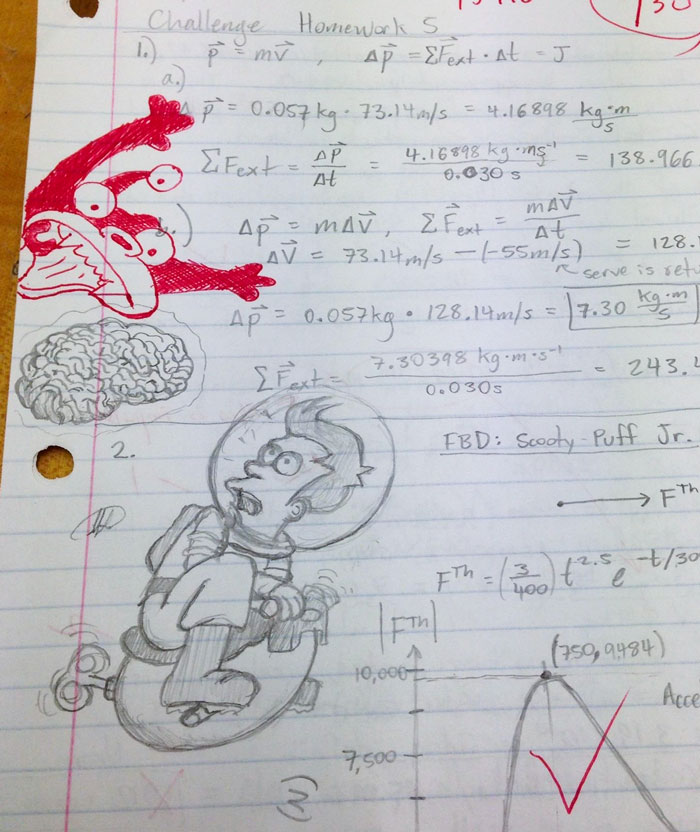 130
Challenge Homework 5
1.) p⃗ = mv⃗ , Δp⃗ = ΣF⃗ext · Δt = J
a.)
Δp⃗ = 0.057 kg · 73.14 m/s = 4.16898 kg·m/s
ΣFext = Δp⃗/Δt = 4.16898 kg·ms⁻¹/0.030 s = 138.966
b.) Δp⃗ = mΔv⃗ , ΣF⃗ext = mΔv⃗/Δt
Δv⃗ = 73.14 m/s − (−55 m/s) = 128.
↖ serve is retu
Δp⃗ = 0.057 kg · 128.14 m/s = 7.30 kg·m/s
ΣF⃗ext = 7.30398 kg·m·s⁻¹/0.030s = 243.4
2. FBD: Scooty-Puff Jr.
F^Th
F^Th = (3/400) t^2.5 e^-t/30
|F^Th|
(750, 9484)
10,000
Acce
7,500